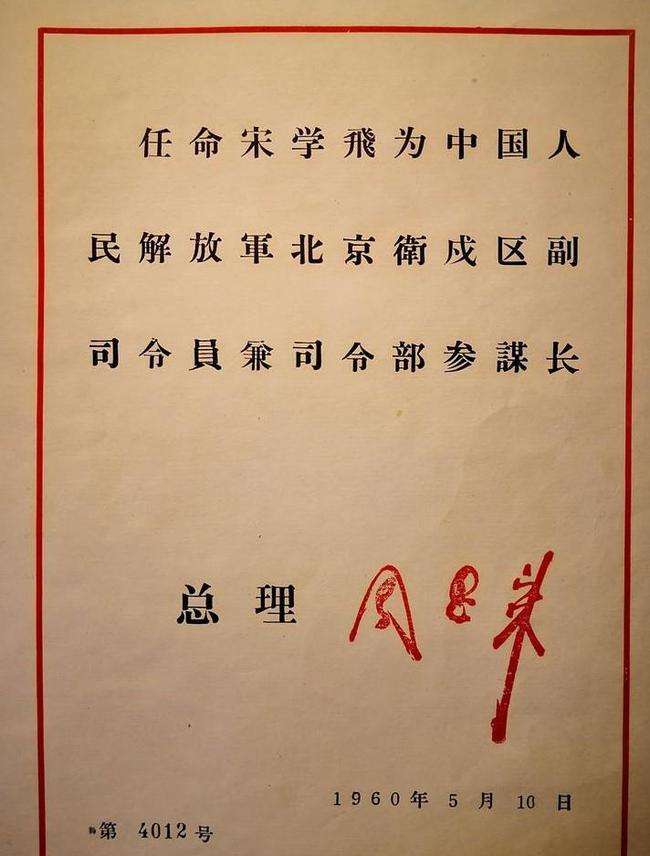 任命宋学飛为中国人
民解放軍北京衛戍区副
司令員兼司令部参謀长
总理 周恩来
1960年5月10日
第 4012 号